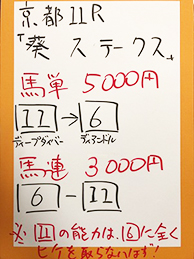 京都11R
「葵 ステークス」
馬単 5000円
11→6
ディープダイバー ディアンドル
馬連 3000円
6-11
※11の能力は、6に全く
ヒケを取らないはず!